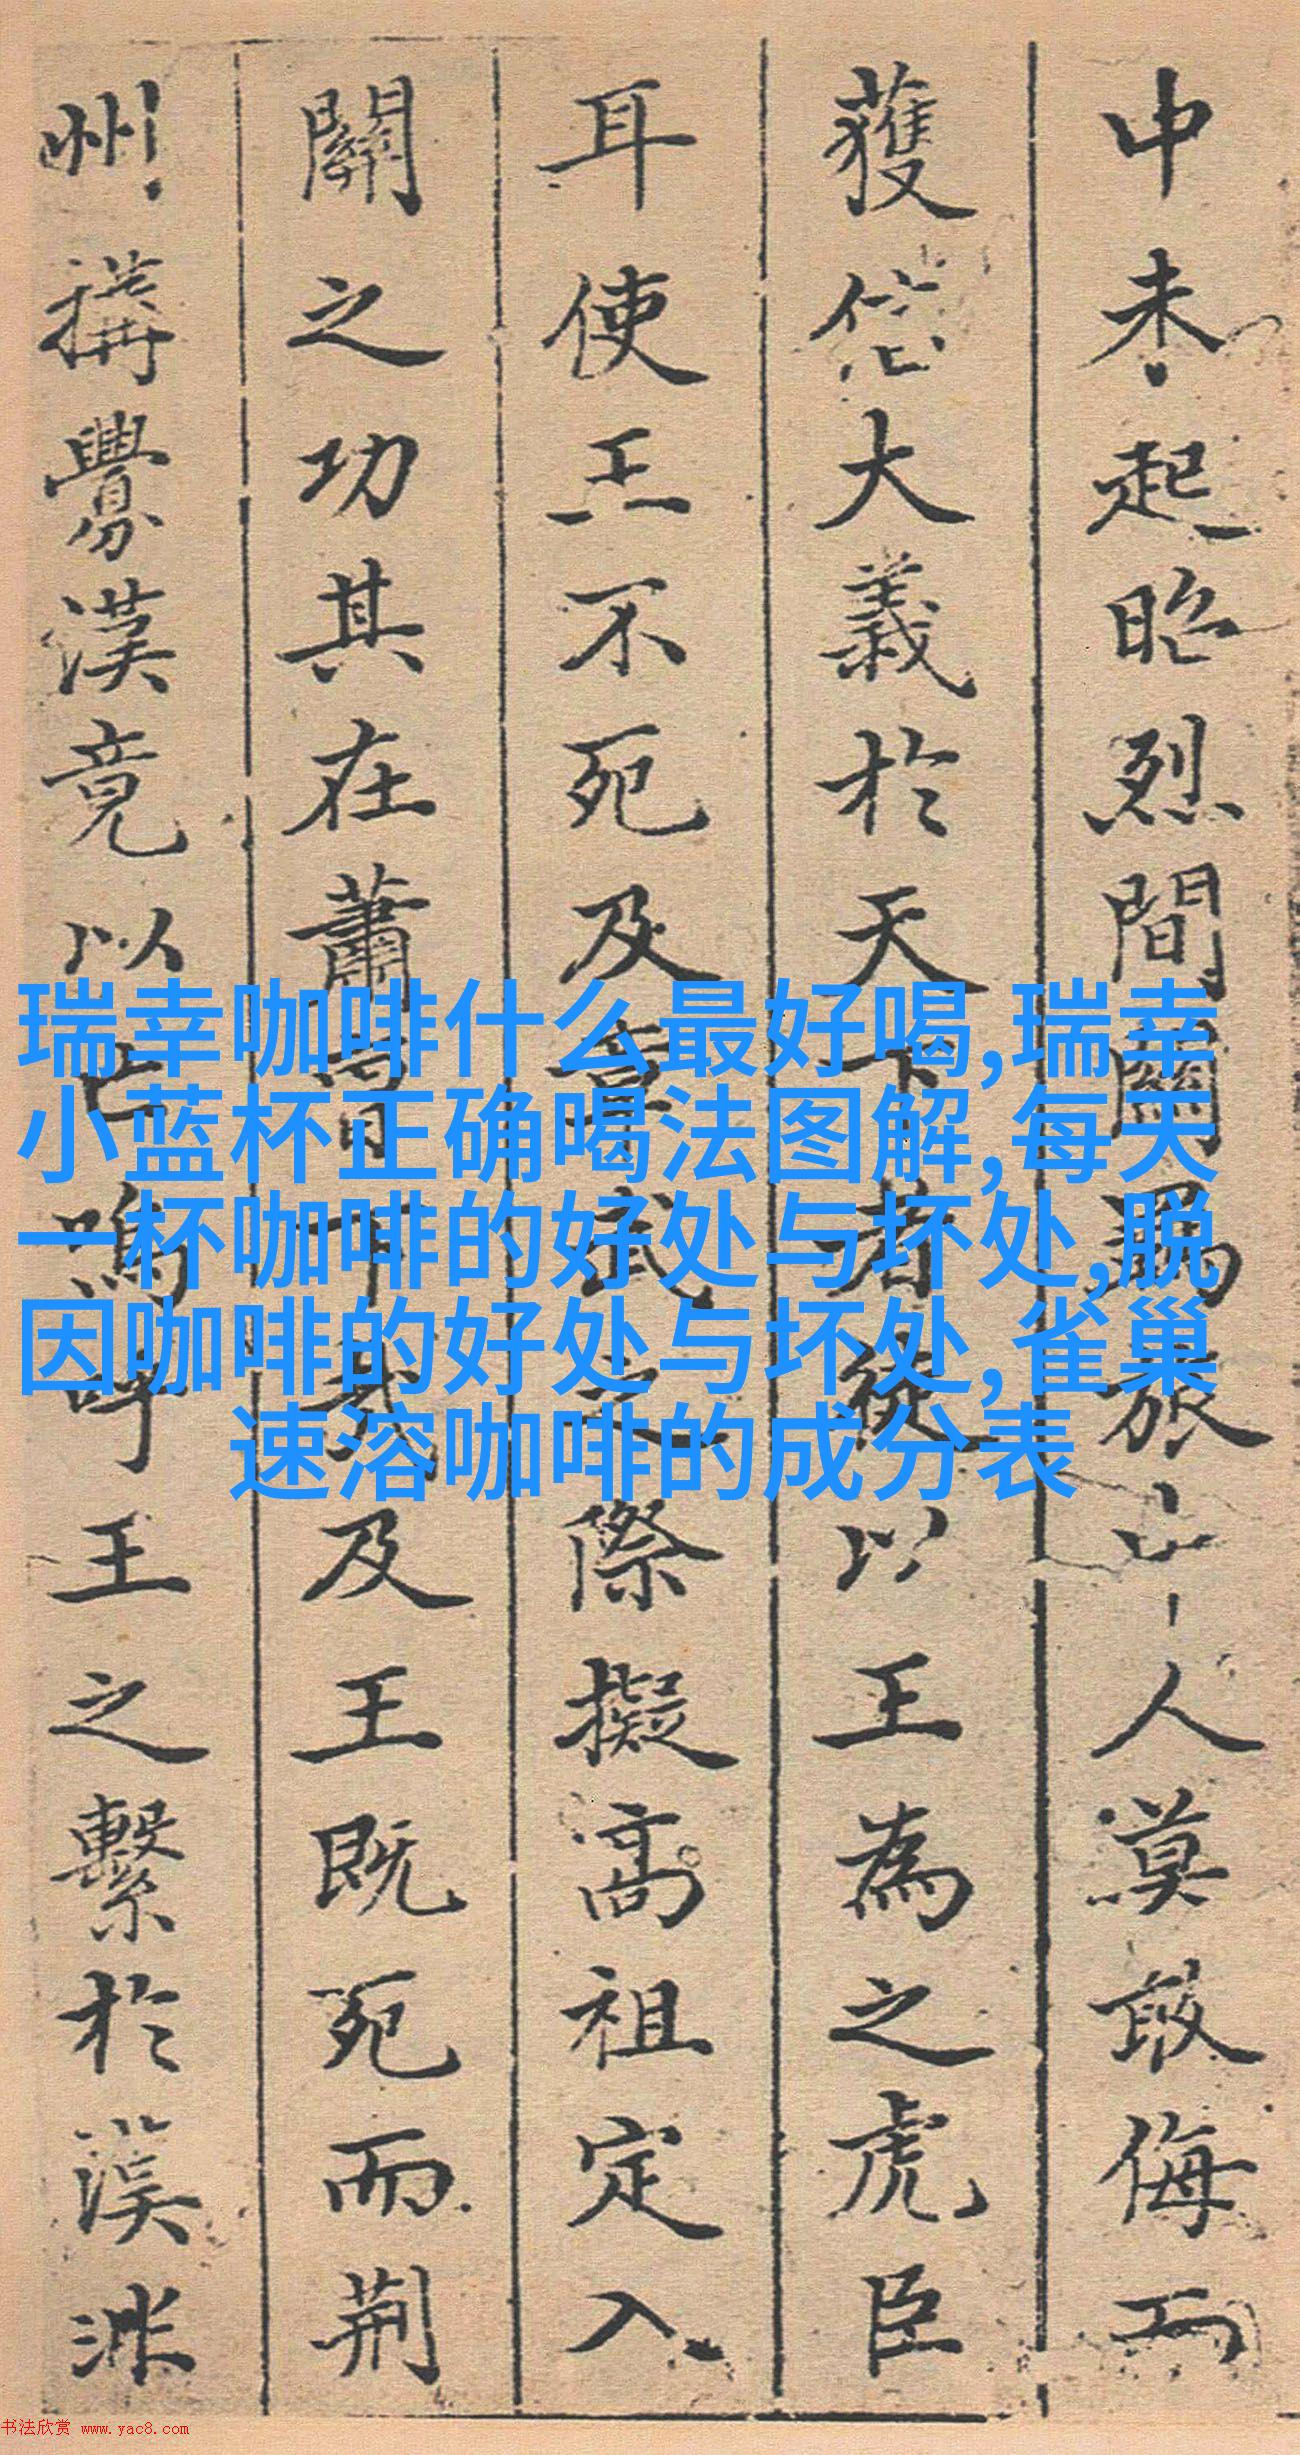 中未起昭烈間關羈旅人漠敢侮而
獲信大義於天下者徒以王為之虎臣
耳使王不死及章武之際擬高祖定入
關之功其在蕭曹下哉及王既死而荊
州搆釁漢竟以亡嗚呼王之繫於漢
瑞幸咖啡什么最好喝,瑞幸
小蓝杯正确喝法图解,每天
一杯咖啡的好处与坏处,脱
因咖啡的好处与坏处,雀巢
速溶咖啡的成分表
书法欣赏 www.yac8.com